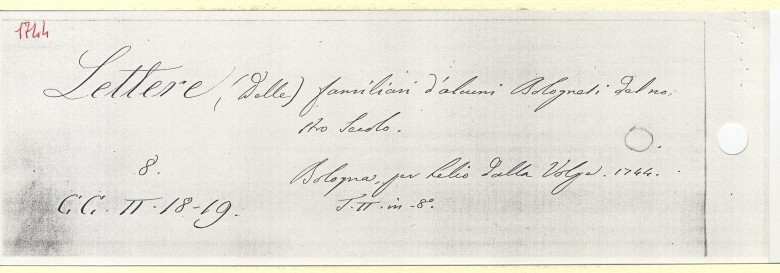 1744
Lettere (Delle) familiari d'alcuni Bolognesi del no:
stro Secolo.
8. Bologna, per Lelio Dalla Volpe. 1744.
CC. II. 18-19. T. II. in-8°.